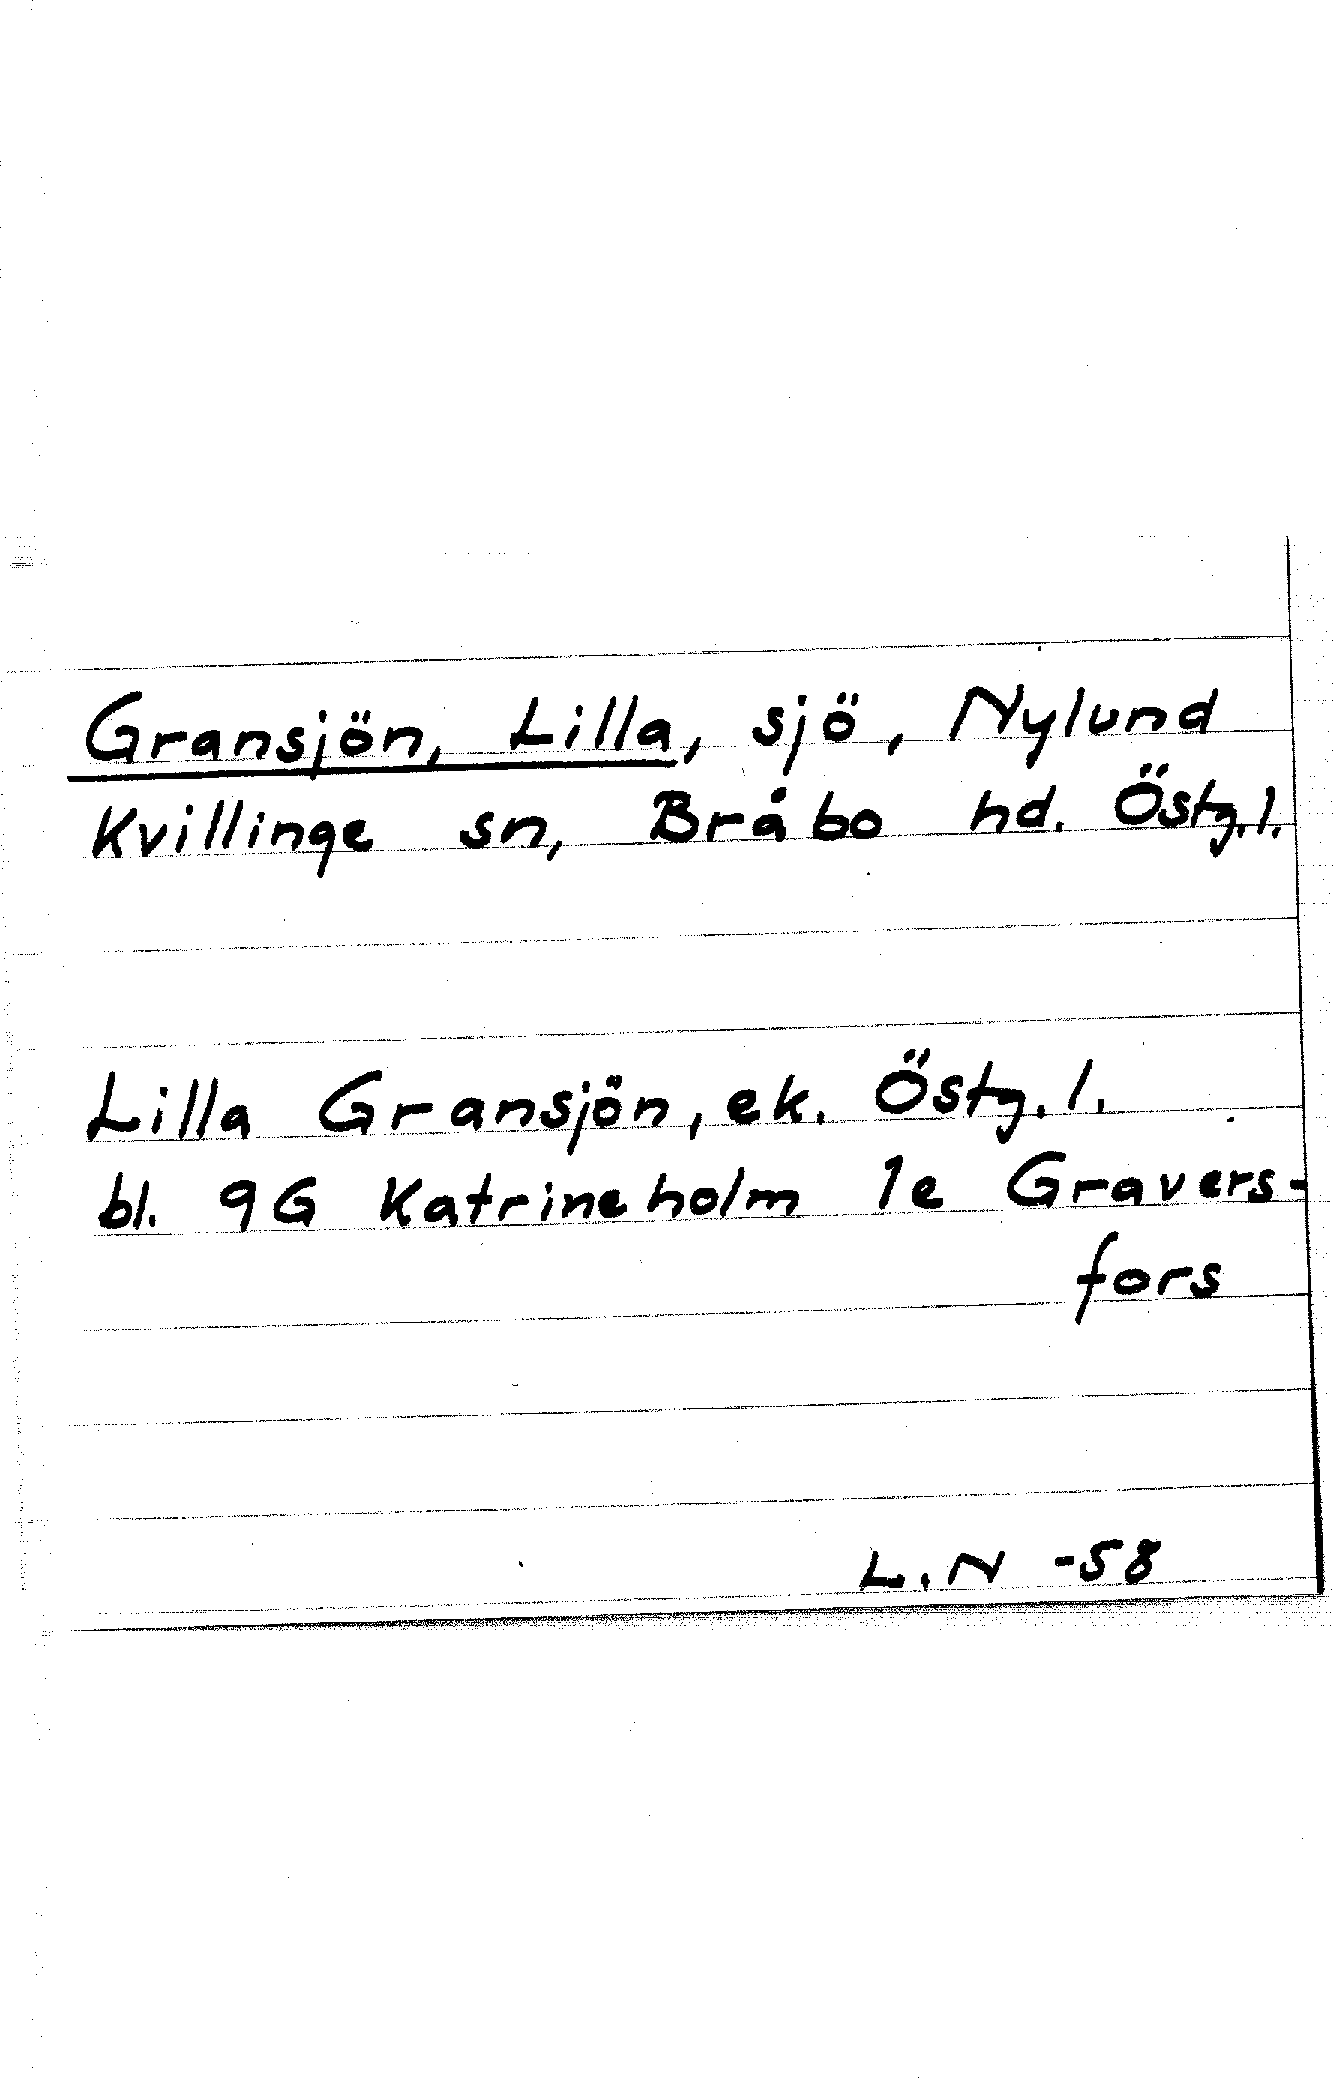 Gransjön, Lilla, sjö, Nylund
Kvillinge sn, Bråbo hd. Östg.l.
Lilla Gransjön, ek. Östg.l.
bl. 9G Katrineholm 1e Gravers-
fors
L.N -58